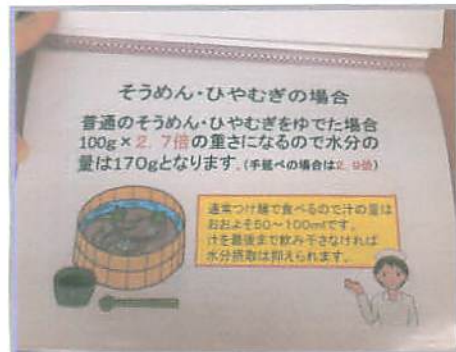 そうめん・ひやむぎの場合
普通のそうめん・ひやむぎをゆでた場合
100g×2.7倍の重さになるので水分の
量は170gとなります。(手延べの場合は2.9倍)
通常つけ麺で食べるので汁の量は
おおよそ50～100mlです。
汁を最後まで飲み干さなければ
水分摂取は抑えられます。